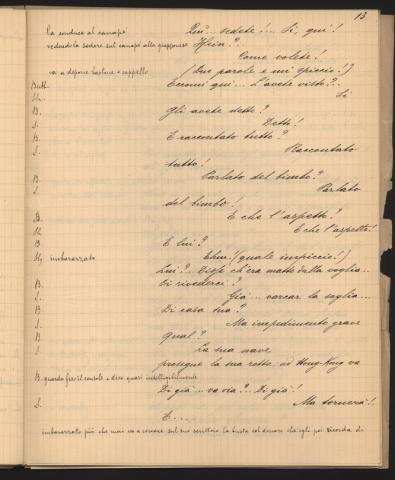 13
la conduce al canapè Più... sedete!... Sì, qui!
vedendola sedere sul canapè alla giapponese Hein?
Come volete!
va a deporre bastone e cappello (Due parole e mi spiccio!)
Butt. Eccomi qui... L'avete visto?..
Sh. Sì
B. Gli avete detto?
S. Detto!
B. E raccontato tutto?
S. Raccontato
tutto!
B. Parlato del bimbo?
S. Parlato
del bimbo!
B. E che l'aspetto?
Sh. E che l'aspetta!
B. E lui?
Sh, imbarazzato Ehm! (quale impiccio!)
Lui?.. Disse ch'era matto dalla voglia...
B. Di rivederci?
S. Già... varcar la soglia...
B. Di casa sua?
S. Ma impedimento grave
B. Qual?
S. La sua nave,
prosegue la sua rotta: ad Hong-Kong va
B. guarda fiso il console e dice quasi inintelligibilmente Di già... va via?.. Di già!
S. Ma tornerà!..
E....
imbarazzato più che mai va a cercare sul suo scrittoio la busta col denaro che egli poi ricorda di